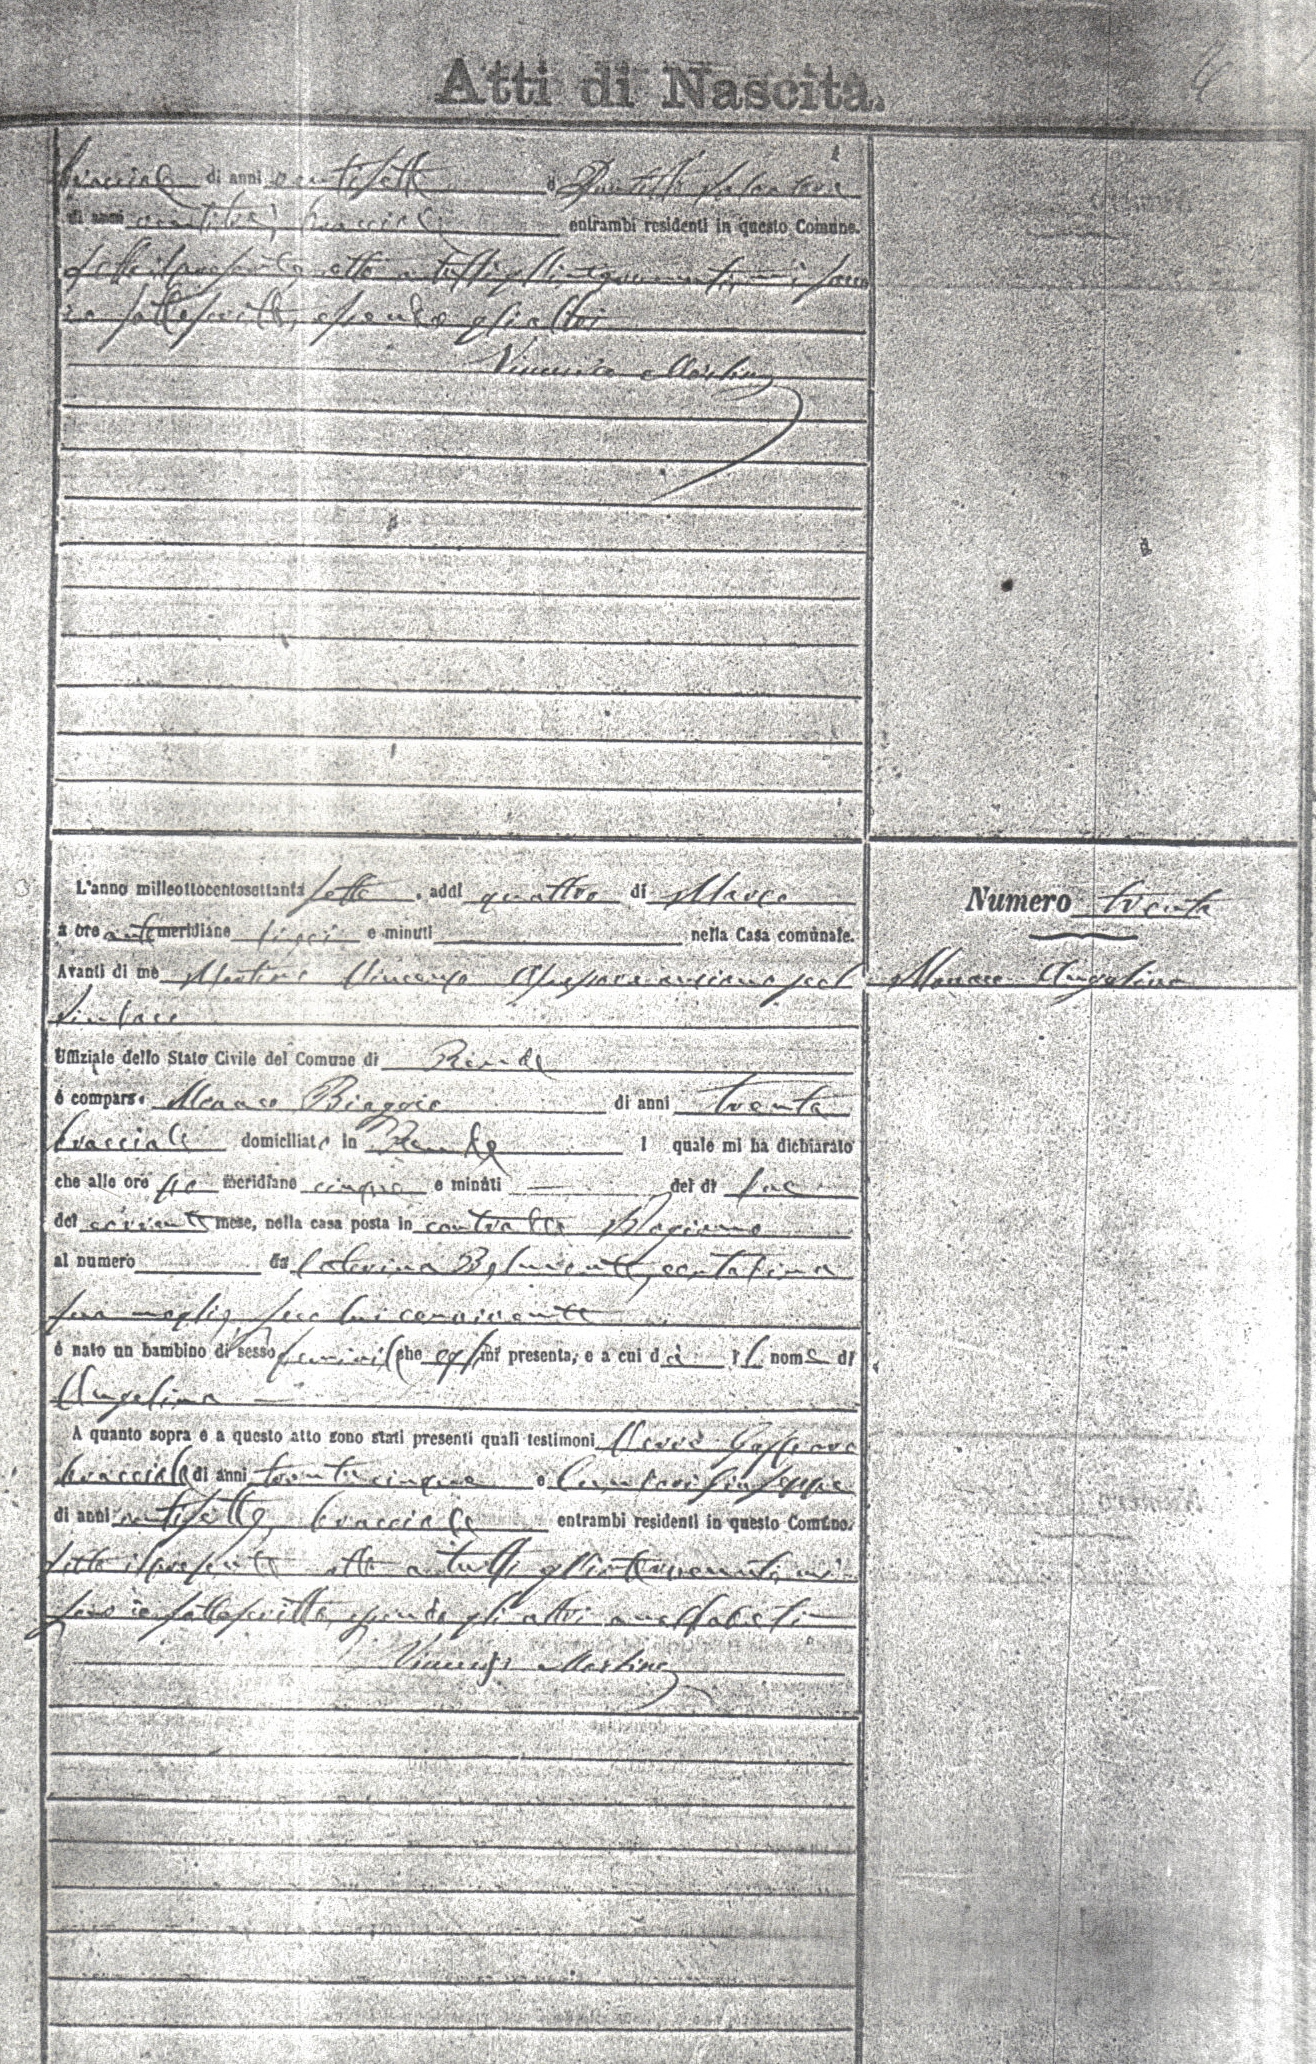 Atti di Nascita.
bracciale di anni ventisette e
di anni bracciale entrambi residenti in questo Comune.
Letto il presente atto a tutti gl'intervenuti, mi sono
io sottoscritto, essendo gli altri
Vincenzo Martino
L'anno milleottocentosettanta sette, addì quattro di Marzo
a ore antimeridiane dieci e minuti nella Casa comunale.
Avanti di me Martino Vincenzo Assessore anziano pel
Sindaco
Uffiziale dello Stato Civile del Comune di Rende
è comparso Monaco Biaggio di anni trenta
bracciale domiciliato in Rende l quale mi ha dichiarato
che alle ore po meridiane cinque e minuti del dì due
del corrente mese, nella casa posta in contrada
al numero da contadina
sua moglie, seco lui convivente
è nato un bambino di sesso feminile che egli mi presenta, e a cui dà il nome di
Angelina
A quanto sopra e a questo atto sono stati presenti quali testimoni Gaspare
bracciale di anni trentacinque e Giuseppe
di anni ventisette, bracciale entrambi residenti in questo Comune.
Letto il presente atto a tutti gl'intervenuti, mi
sono io sottoscritto, essendo gli altri analfabeti
Vincenzo Martino
Numero trenta
Monaco Angelina